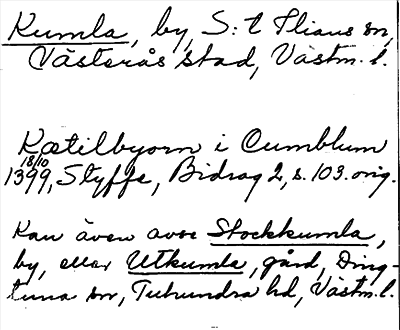 Kumla, by, S:t Ilians sn,
Västerås stad, Västm. l.
Kætilbyorn i Cumblum
18/10
1399, Styffe, Bidrag 2, s. 103. orig.
Kan även avse Stockkumla,
by, eller Utkumla, gård, Ding-
tuna sn, Tuhundra hd, Västm. l.